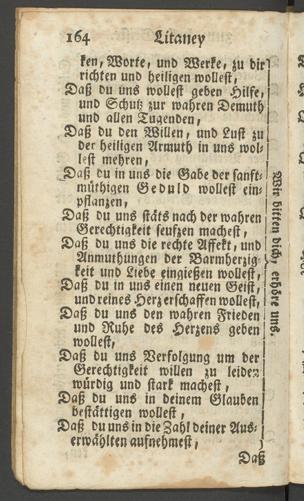 164 Litaney
ken, Worte, und Werke, zu dir
richten und heiligen wollest,
Daß du uns wollest geben Hilfe,
und Schutz zur wahren Demuth
und allen Tugenden,
Daß du den Willen, und Lust zu
der heiligen Armuth in uns wol-
lest mehren,
Daß du in uns die Gabe der sanft-
müthigen Geduld wollest ein-
pflanzen,
Daß du uns stäts nach der wahren
Gerechtigkeit seufzen machest,
Daß du uns die rechte Affekt, und
Anmuthungen der Barmherzig-
keit und Liebe eingießen wollest,
Daß du in uns einen neuen Geist,
und reines Herz erschaffen wollest,
Daß du uns den wahren Frieden
und Ruhe des Herzens geben
wollest,
Daß du uns Verfolgung um der
Gerechtigkeit willen zu leiden
würdig und stark machest,
Daß du uns in deinem Glauben
bestättigen wollest,
Daß du uns in die Zahl deiner Aus-
erwählten aufnehmest,
Daß
Wir bitten dich, erhöre uns.